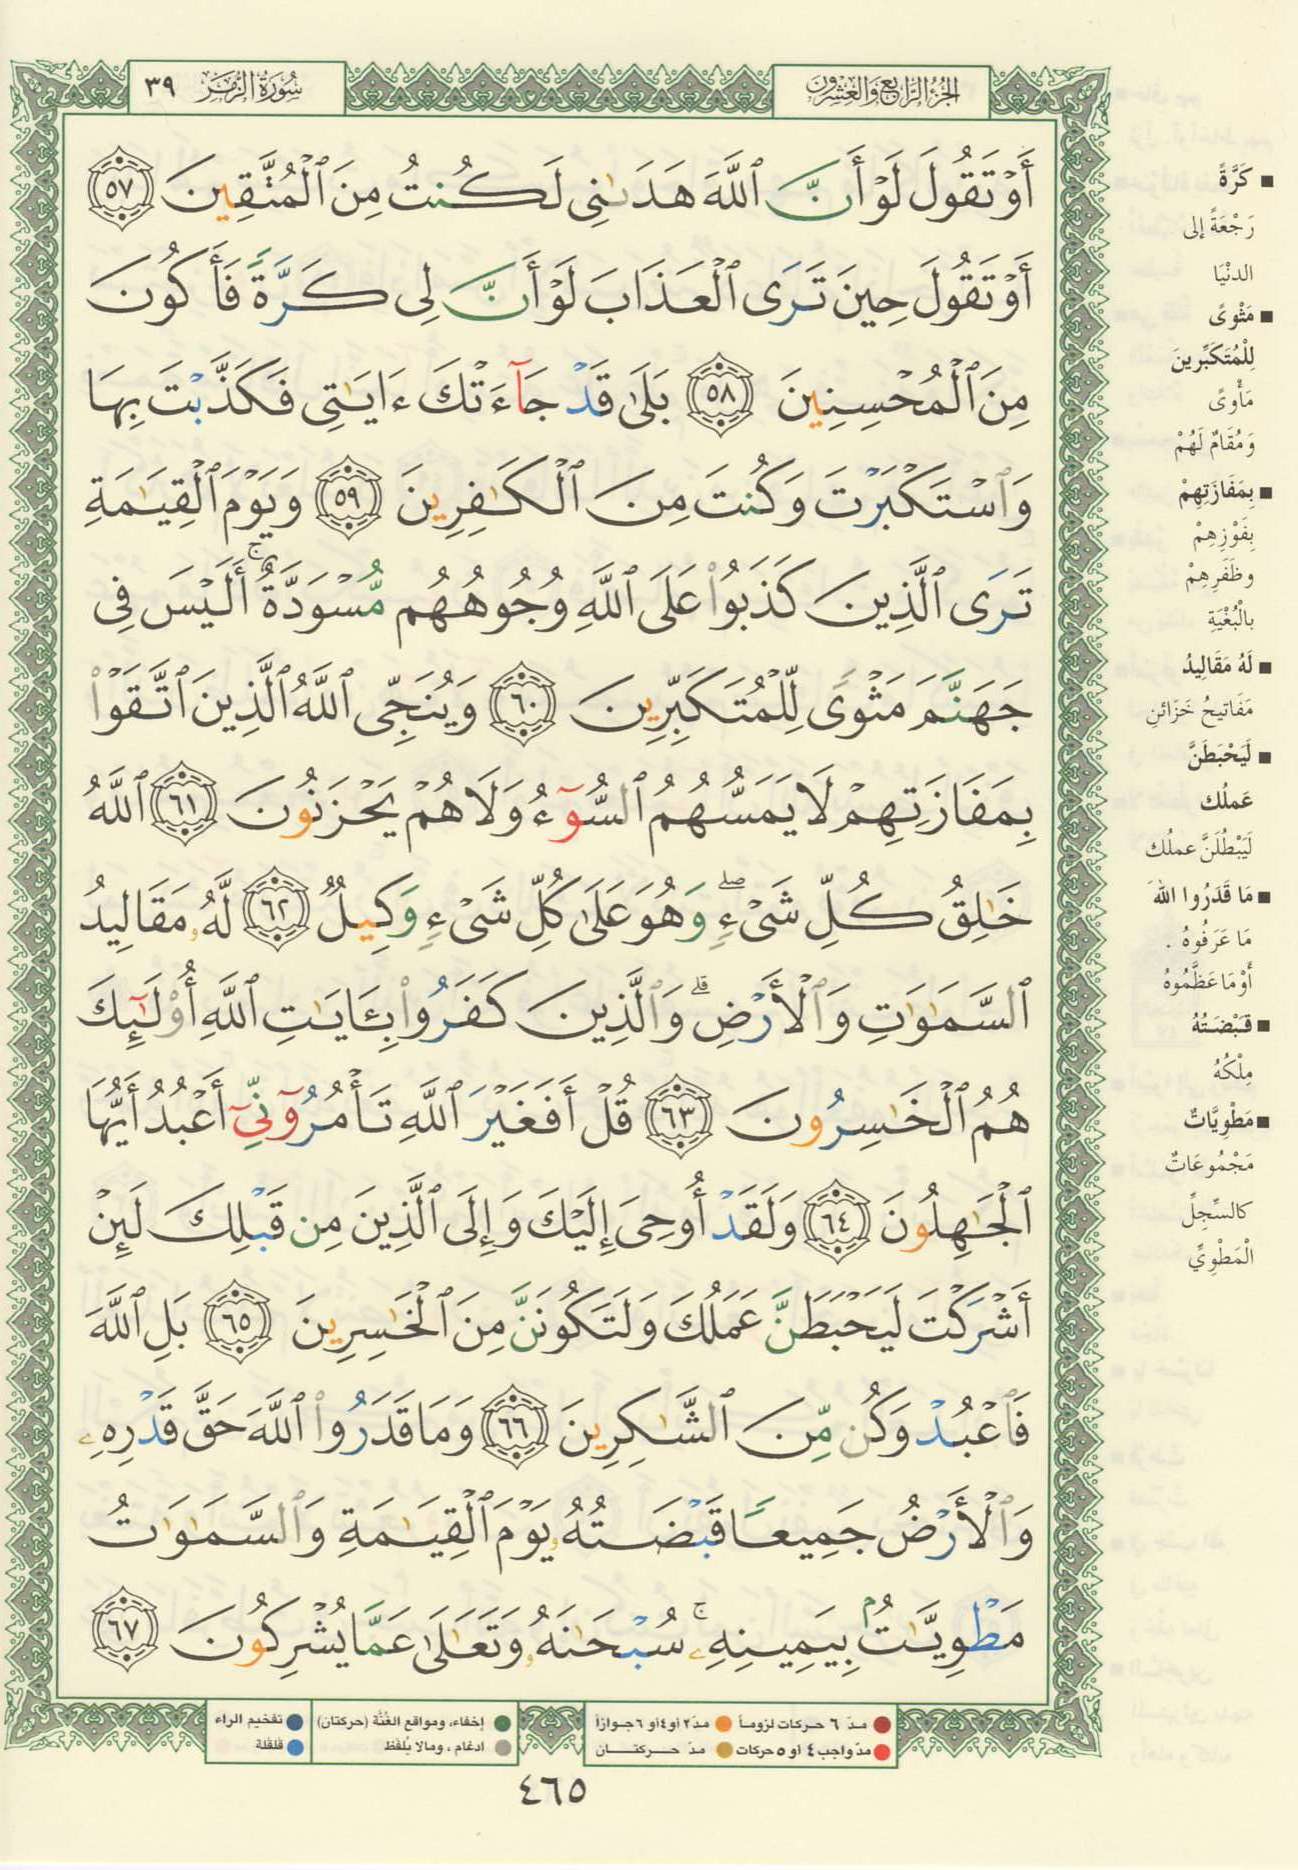 الجزء الرابع والعشرون
سورة الزمر ٣٩
أَوْ تَقُولَ لَوْ أَنَّ ٱللَّهَ هَدَىٰنِى لَكُنتُ مِنَ ٱلْمُتَّقِينَ ٥٧
أَوْ تَقُولَ حِينَ تَرَى ٱلْعَذَابَ لَوْ أَنَّ لِى كَرَّةً فَأَكُونَ
مِنَ ٱلْمُحْسِنِينَ ٥٨ بَلَىٰ قَدْ جَآءَتْكَ ءَايَٰتِى فَكَذَّبْتَ بِهَا
وَٱسْتَكْبَرْتَ وَكُنتَ مِنَ ٱلْكَٰفِرِينَ ٥٩ وَيَوْمَ ٱلْقِيَٰمَةِ
تَرَى ٱلَّذِينَ كَذَبُوا۟ عَلَى ٱللَّهِ وُجُوهُهُم مُّسْوَدَّةٌ ۚ أَلَيْسَ فِى
جَهَنَّمَ مَثْوًى لِّلْمُتَكَبِّرِينَ ٦٠ وَيُنَجِّى ٱللَّهُ ٱلَّذِينَ ٱتَّقَوْا۟
بِمَفَازَتِهِمْ لَا يَمَسُّهُمُ ٱلسُّوٓءُ وَلَا هُمْ يَحْزَنُونَ ٦١ ٱللَّهُ
خَٰلِقُ كُلِّ شَىْءٍ ۖ وَهُوَ عَلَىٰ كُلِّ شَىْءٍ وَكِيلٌ ٦٢ لَّهُۥ مَقَالِيدُ
ٱلسَّمَٰوَٰتِ وَٱلْأَرْضِ ۗ وَٱلَّذِينَ كَفَرُوا۟ بِـَٔايَٰتِ ٱللَّهِ أُو۟لَٰٓئِكَ
هُمُ ٱلْخَٰسِرُونَ ٦٣ قُلْ أَفَغَيْرَ ٱللَّهِ تَأْمُرُوٓنِّىٓ أَعْبُدُ أَيُّهَا
ٱلْجَٰهِلُونَ ٦٤ وَلَقَدْ أُوحِىَ إِلَيْكَ وَإِلَى ٱلَّذِينَ مِن قَبْلِكَ لَئِنْ
أَشْرَكْتَ لَيَحْبَطَنَّ عَمَلُكَ وَلَتَكُونَنَّ مِنَ ٱلْخَٰسِرِينَ ٦٥ بَلِ ٱللَّهَ
فَٱعْبُدْ وَكُن مِّنَ ٱلشَّٰكِرِينَ ٦٦ وَمَا قَدَرُوا۟ ٱللَّهَ حَقَّ قَدْرِهِۦ
وَٱلْأَرْضُ جَمِيعًا قَبْضَتُهُۥ يَوْمَ ٱلْقِيَٰمَةِ وَٱلسَّمَٰوَٰتُ
مَطْوِيَّٰتُۢ بِيَمِينِهِۦ ۚ سُبْحَٰنَهُۥ وَتَعَٰلَىٰ عَمَّا يُشْرِكُونَ ٦٧
■ كَرَّةً
رَجْعَةً إلى
الدنْيَا
■ مَثْوىً
لِلْمُتَكَبِّرينَ
مَأْوىً
وَمُقَامٌ لَهُمْ
■ بِمَفَازَتِهِمْ
بِفَوْزِهِمْ
وظَفَرِهِمْ
بالْبُغْيَةِ
■ لَهُ مَقَاليدُ
مَفَاتيحُ خَزَائنِ
■ لَيَحْبَطَنَّ
عَملُك
لَيَبْطُلَنَّ عملُك
■ مَا قَدَرُوا اللهَ
مَا عَرَفُوهُ .
أوْ مَا عَظَّمُوهُ
■ قَبْضَتُهُ
مِلْكُهُ
■ مَطْوِيَّاتٌ
مَجْمُوعَاتٌ
كالسِّجِلِّ
الْمَطْوِيِّ
مدّ ٦ حركات لزوماً مدّ ٢ أو ٤ أو ٦ جوازاً
مدّ واجب ٤ أو ٥ حركات مدّ حركتان
إخفاء، ومواقع الغُنَّة (حركتان) تفخيم الراء
ادغام، ومالا يُلفَظ قلقلة
٤٦٥